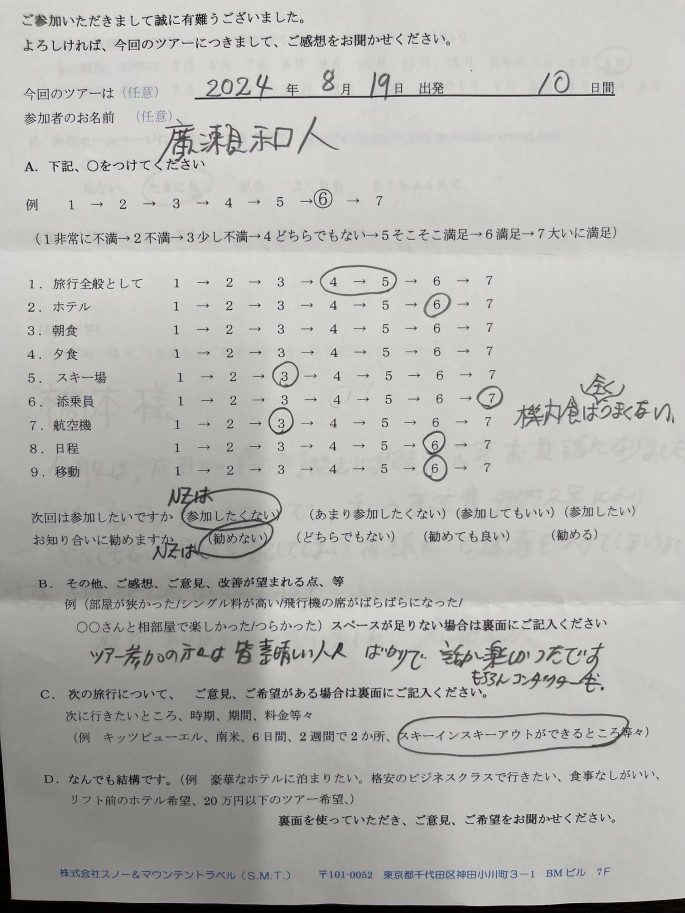 ご参加いただきまして誠に有難うございました。
よろしければ、今回のツアーにつきまして、ご感想をお聞かせください。
今回のツアーは（任意） 2024 年 8 月 19 日 出発 10 日間
参加者のお名前 （任意） 廣瀬和人
A．下記、○をつけてください
例 1 → 2 → 3 → 4 → 5 → ⑥ → 7
（1非常に不満→2不満→3少し不満→4どちらでもない→5そこそこ満足→6満足→7大いに満足）
1．旅行全般として 1 → 2 → 3 → 4 → 5 → 6 → 7
2．ホテル 1 → 2 → 3 → 4 → 5 → 6 → 7
3．朝食 1 → 2 → 3 → 4 → 5 → 6 → 7
4．夕食 1 → 2 → 3 → 4 → 5 → 6 → 7
5．スキー場 1 → 2 → 3 → 4 → 5 → 6 → 7
6．添乗員 1 → 2 → 3 → 4 → 5 → 6 → 7
7．航空機 1 → 2 → 3 → 4 → 5 → 6 → 7 機内食は全くうまくない。
8．日程 1 → 2 → 3 → 4 → 5 → 6 → 7
9．移動 1 → 2 → 3 → 4 → 5 → 6 → 7
NZは
次回は参加したいですか （参加したくない）（あまり参加したくない）（参加してもいい）（参加したい）
お知り合いに勧めますか （勧めない） （どちらでもない） （勧めても良い） （勧める）
NZは
B．その他、ご感想、ご意見、改善が望まれる点、等
例（部屋が狭かった/シングル料が高い/飛行機の席がばらばらになった/
○○さんと相部屋で楽しかった/つらかった）スペースが足りない場合は裏面にご記入ください
ツアー参加の方々は皆素晴しい人々ばかりで話が楽しかったです
もちろんコンダクターも。
C．次の旅行について、 ご意見、ご希望がある場合は裏面にご記入ください。
次に行きたいところ、時期、期間、料金等々
（例 キッツビューエル、南米、6日間、2週間で2か所、スキーインスキーアウトができるところ等々）
D．なんでも結構です。（例 豪華なホテルに泊まりたい。格安のビジネスクラスで行きたい、食事なしがいい、
リフト前のホテル希望、20万円以下のツアー希望、）
裏面を使っていただき、ご意見、ご希望をお聞かせください。
株式会社スノー＆マウンテントラベル（S.M.T.） 〒101-0052 東京都千代田区神田小川町3－1 BMビル 7F